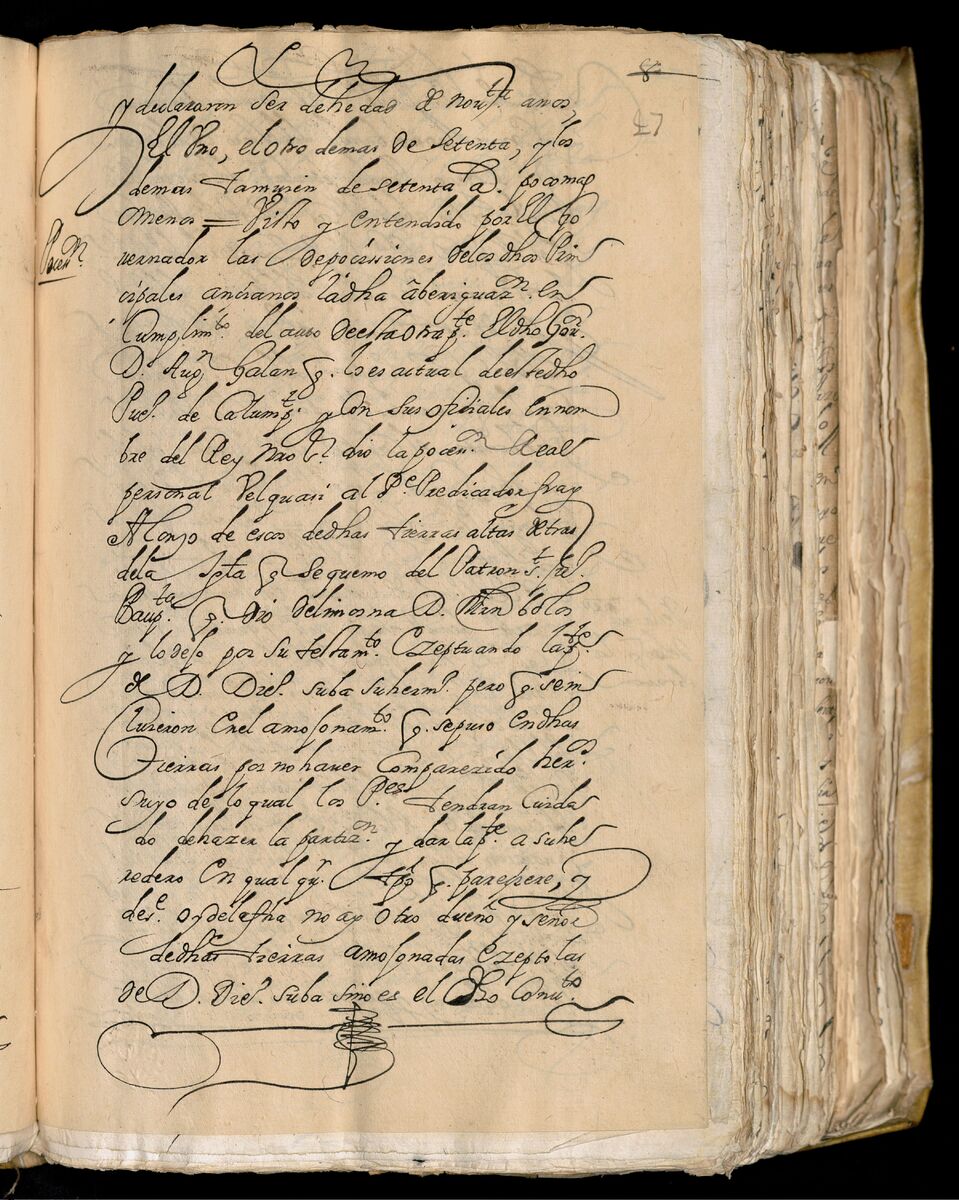 8
27
y declararon ser dehedad de nou.ta anos,
El Vno, elotro demas de Setenta, y los
demas tamvien de setenta a. pocomas
Omenos = Visto y entendido por El Go
Poceon.
vernador las depocissiones delosdhos Prin
cipales ancianos ladha aberiguaz.on en
Cumplim.to del auto deestaotra p.te Eldho Gor.
D. Aug.n Galan q. loes actual deestedho
Pue.o de Calump.t y Con sus ofiziales en nom
bre del Rey Nro S.r dio lapocen.on Real
personal Velquasi al P.e Predicador fray
Alonzo de esos dedhas tierras altas detras
dela Ygta q. sequemo del Patron S.t Ju.
Baup.ta q. dio delimosna D. Mrn bolos
y lodejo por su testam.to Ezeptuando lap.te
de D. Die.o suba suherm.o pero q. sein
Cluieron enel amojonam.to q. sepuso endhas
Tierras por no hauer Comparezido her.on
Suyo de lo qual los P.es tendran Cuida
do dehazer la partiz.on y dar lap.te a suhe
redero En qualq.r tpo q. pareziere, y
des.e oydelafha no ay otro dueño y señor
dedhas tierras amojonadas Ezepto las
de D. Die.o suba sino es el dho Conu.to